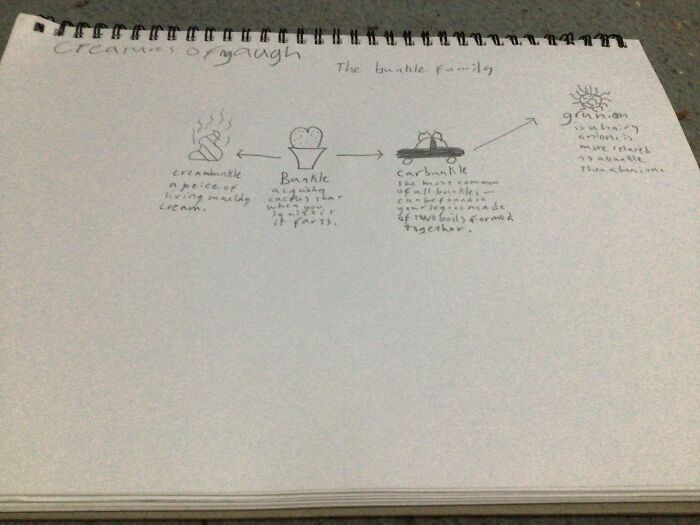 Creatures Of gaugh
The bunkle Family
creambunkle
a peice of
living mouldy
cream.
Bunkle
a squishy
cactus that
when you
squish it
it farts.
carbunkle
The most common
of all bunkles —
can be found on
your leg is made
of two boils formed
together.
grunion
is a hairy
onion is
more related
to a bunkle
then a bunion.